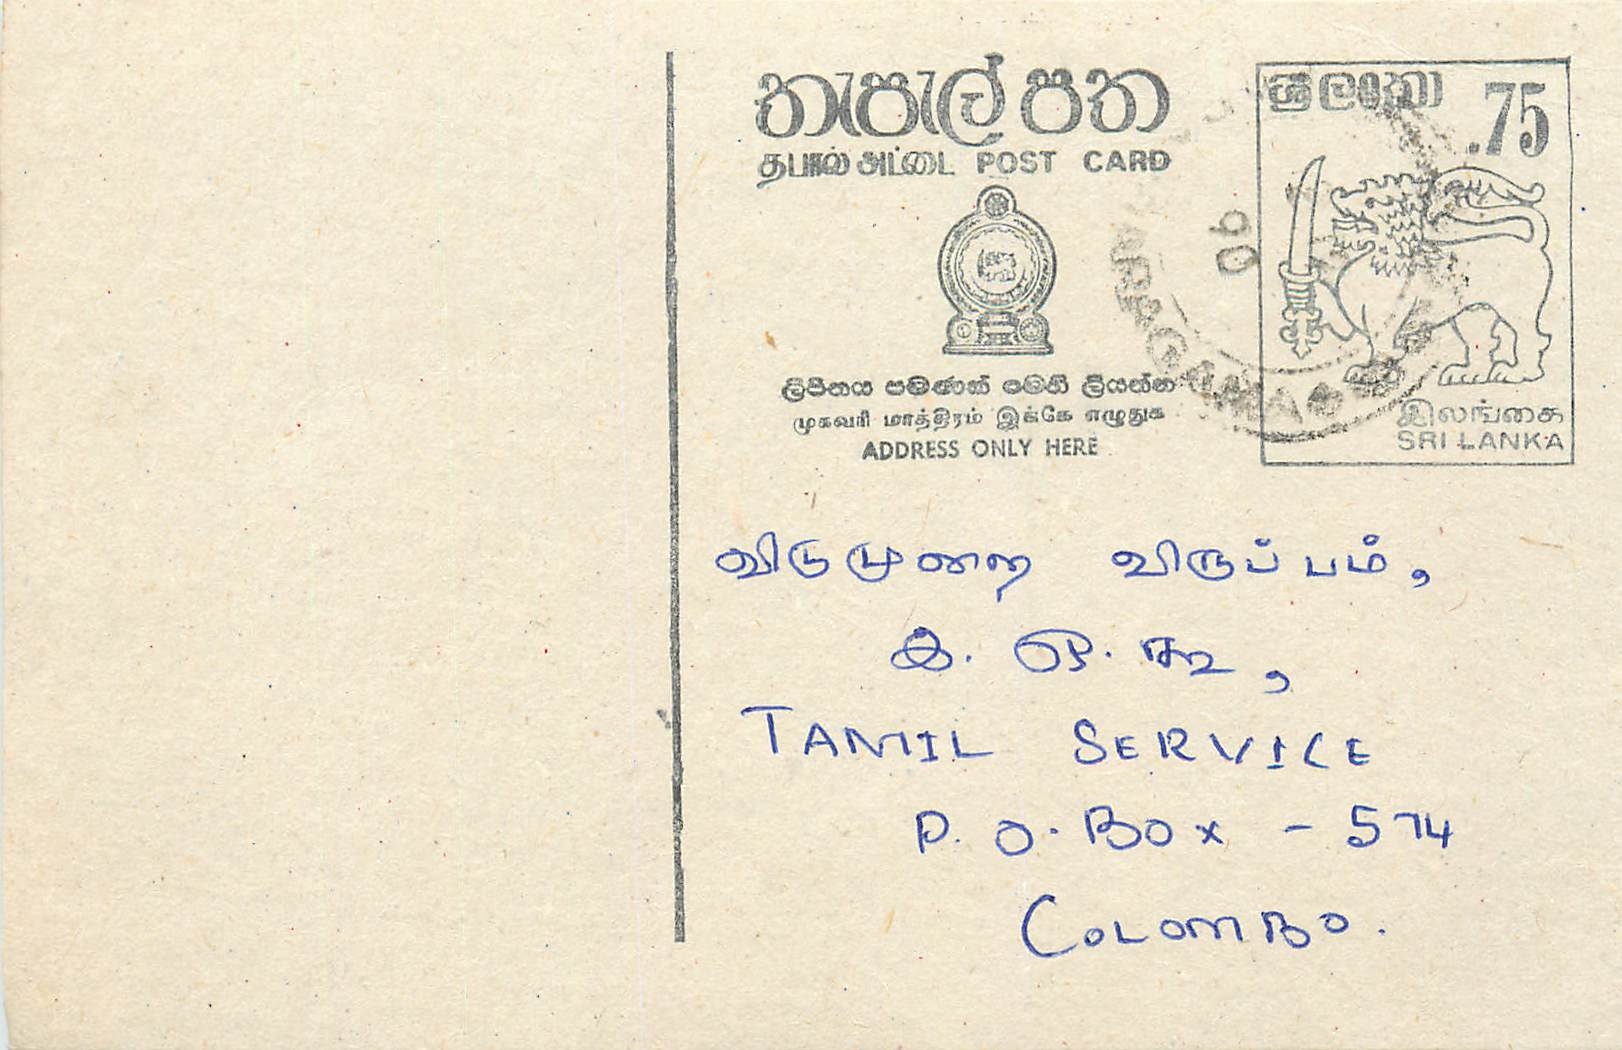 තැපැල් පත
தபால் அட்டை POST CARD
ලිපිනය පමණක් මෙහි ලියන්න
முகவரி மாத்திரம் இங்கே எழுதுக
ADDRESS ONLY HERE
ශ්‍රී ලංකා .75
இலங்கை
SRI LANKA
90
விடுமுறை விருப்பம்,
இ. ஒ. கூ,
TAMIL SERVICE
P. O. BOX - 574
COLOMBO.